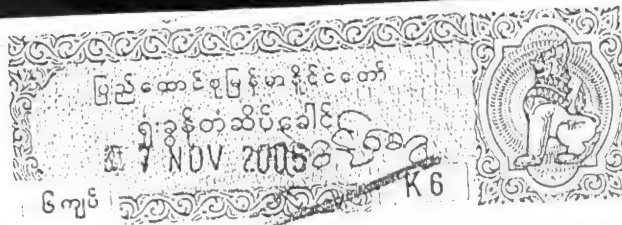 ပြည်ထောင်စုမြန်မာနိုင်ငံတော်
ရုံးခွန်တံဆိပ်ခေါင်း
7 NOV 2005
၆ကျပ် K6